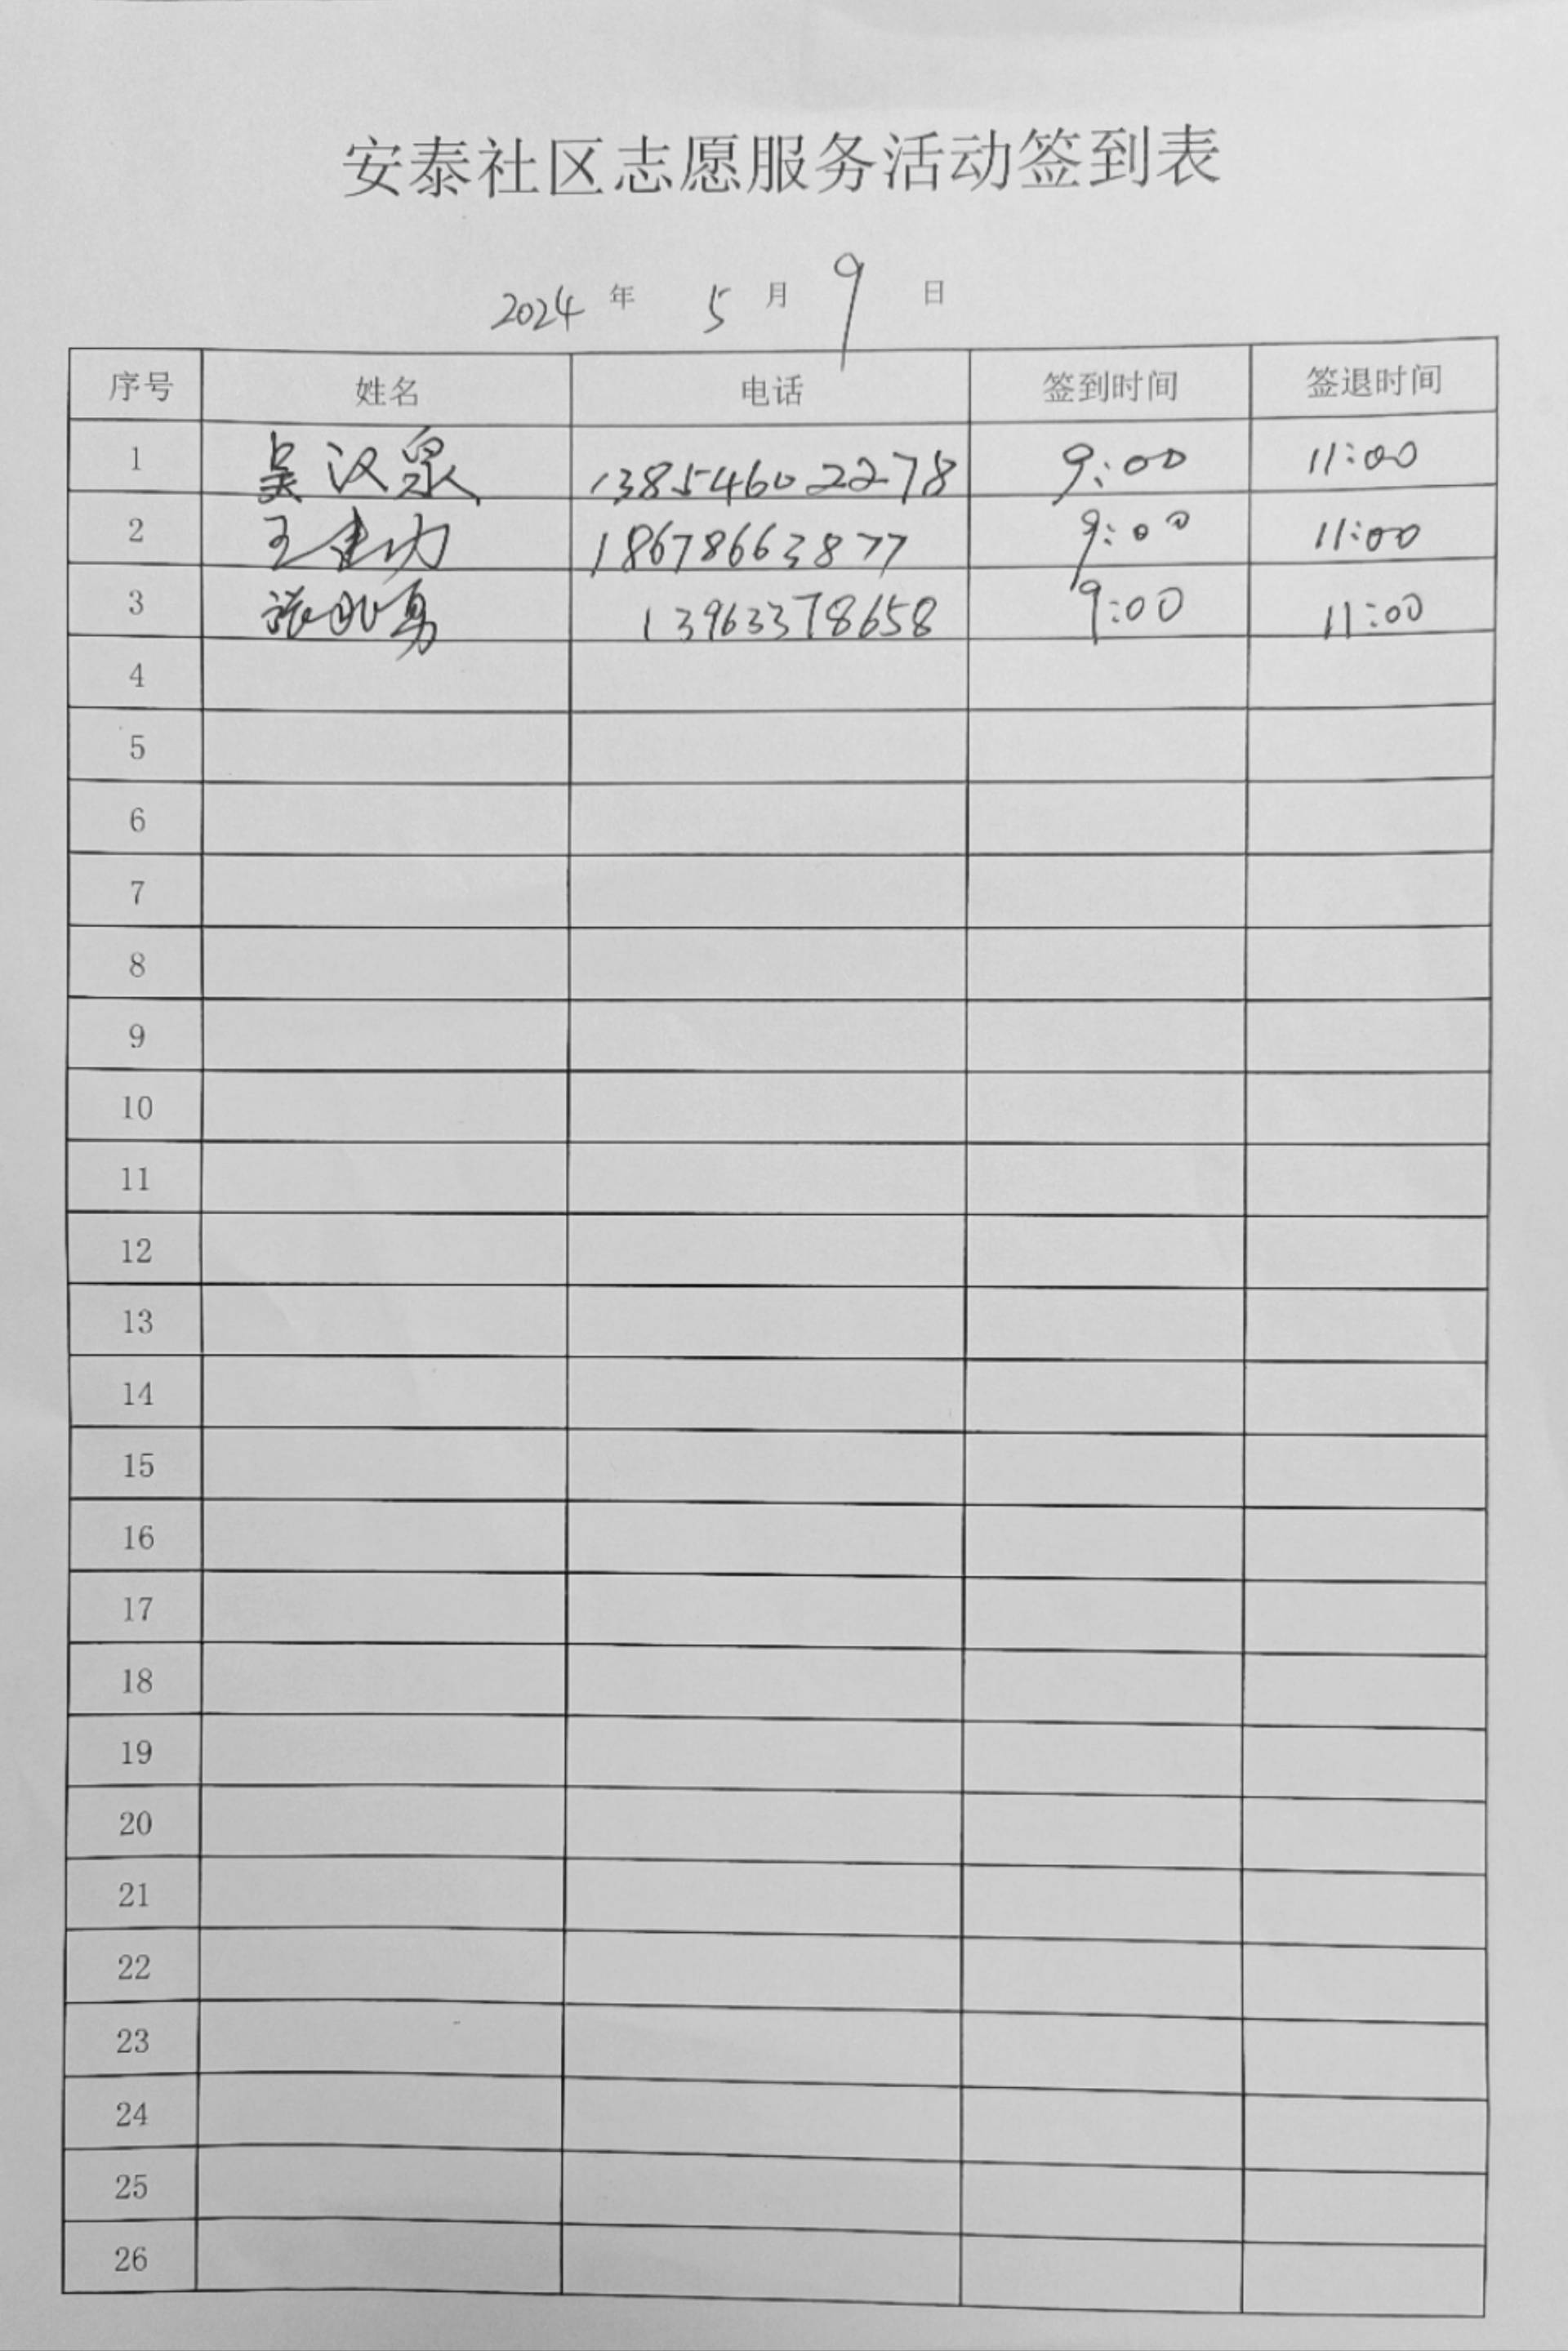 安泰社区志愿服务活动签到表
2024 年 5 月 9 日
序号 姓名 电话 签到时间 签退时间
1 吴汉泉 13854602278 9:00 11:00
2 王建功 18678663877 9:00 11:00
3 张 勇 13963378658 9:00 11:00
4
5
6
7
8
9
10
11
12
13
14
15
16
17
18
19
20
21
22
23
24
25
26